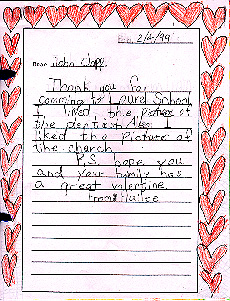 2/4/99
Dear John
Thank you for
coming to Laurel School
I liked the picture of
the
liked the picture of
the church
P.S. hope you
and your family has
a great valentine
from